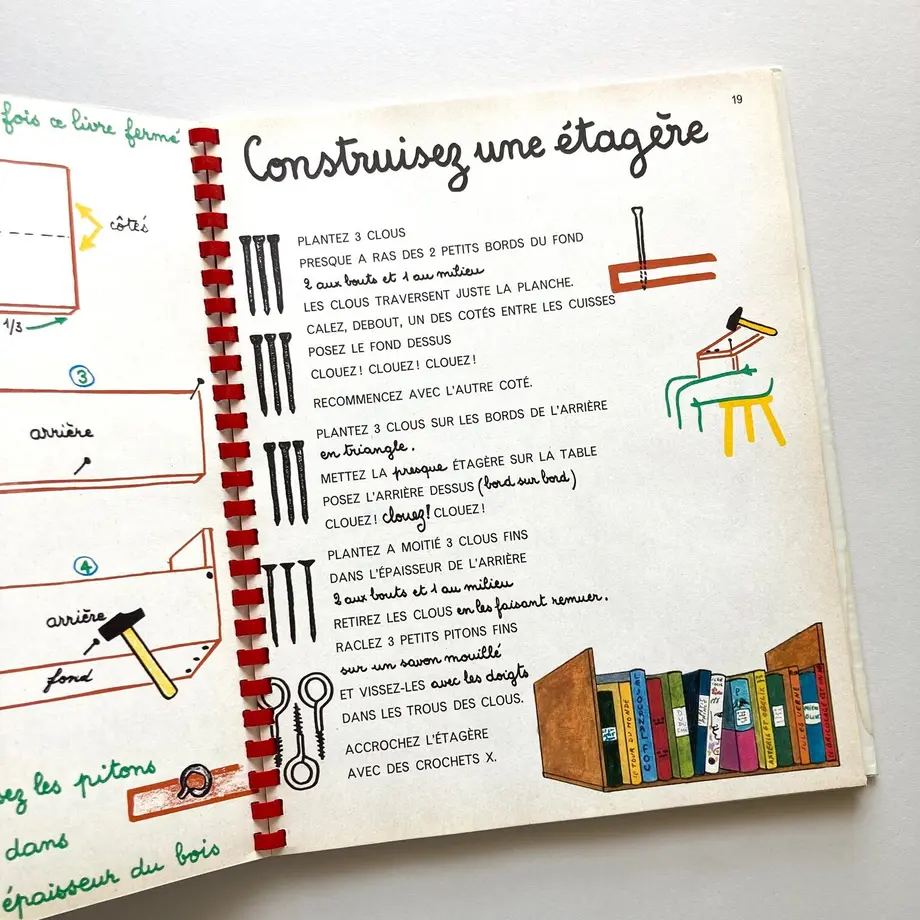 fois ce livre fermé
côtés
1/3
3
arrière
4
arrière
fond
les pitons
dans
épaisseur du bois
19
Construisez une étagère
PLANTEZ 3 CLOUS
PRESQUE A RAS DES 2 PETITS BORDS DU FOND
2 aux bouts et 1 au milieu
LES CLOUS TRAVERSENT JUSTE LA PLANCHE.
CALEZ, DEBOUT, UN DES COTÉS ENTRE LES CUISSES
POSEZ LE FOND DESSUS
CLOUEZ! CLOUEZ! CLOUEZ!
RECOMMENCEZ AVEC L'AUTRE COTÉ.
PLANTEZ 3 CLOUS SUR LES BORDS DE L'ARRIÈRE
en triangle.
METTEZ LA presque ÉTAGÈRE SUR LA TABLE
POSEZ L'ARRIÈRE DESSUS (bord sur bord)
CLOUEZ! clouez! CLOUEZ!
PLANTEZ A MOITIÉ 3 CLOUS FINS
DANS L'ÉPAISSEUR DE L'ARRIÈRE
2 aux bouts et 1 au milieu
RETIREZ LES CLOUS en les faisant remuer.
RACLEZ 3 PETITS PITONS FINS
sur un savon mouillé
ET VISSEZ-LES avec les doigts
DANS LES TROUS DES CLOUS.
ACCROCHEZ L'ÉTAGÈRE
AVEC DES CROCHETS X.
LE TOUR DU MONDE
LE JOURNAL FOU
JULES VERNE